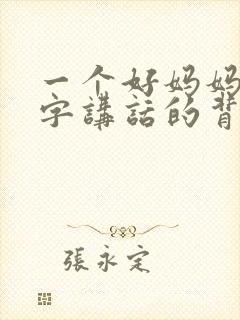 一个好妈妈
字講話的背
張永定